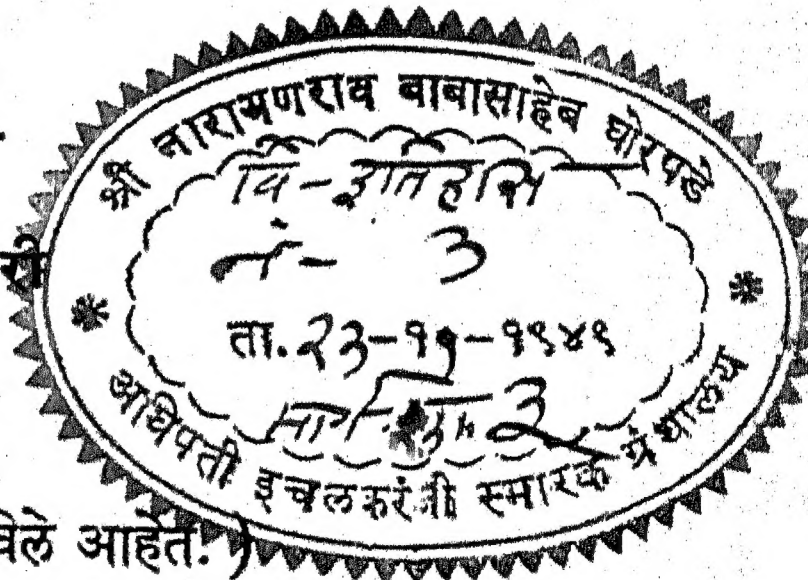 श्री नारायणराव बाबासाहेब घोरपडे
वि - इतिहास
नं - 3
री
ता. २३-११-१९४९
अधिपती इचलकरंजी स्मारक ग्रंथालय
वेले आहेत. )